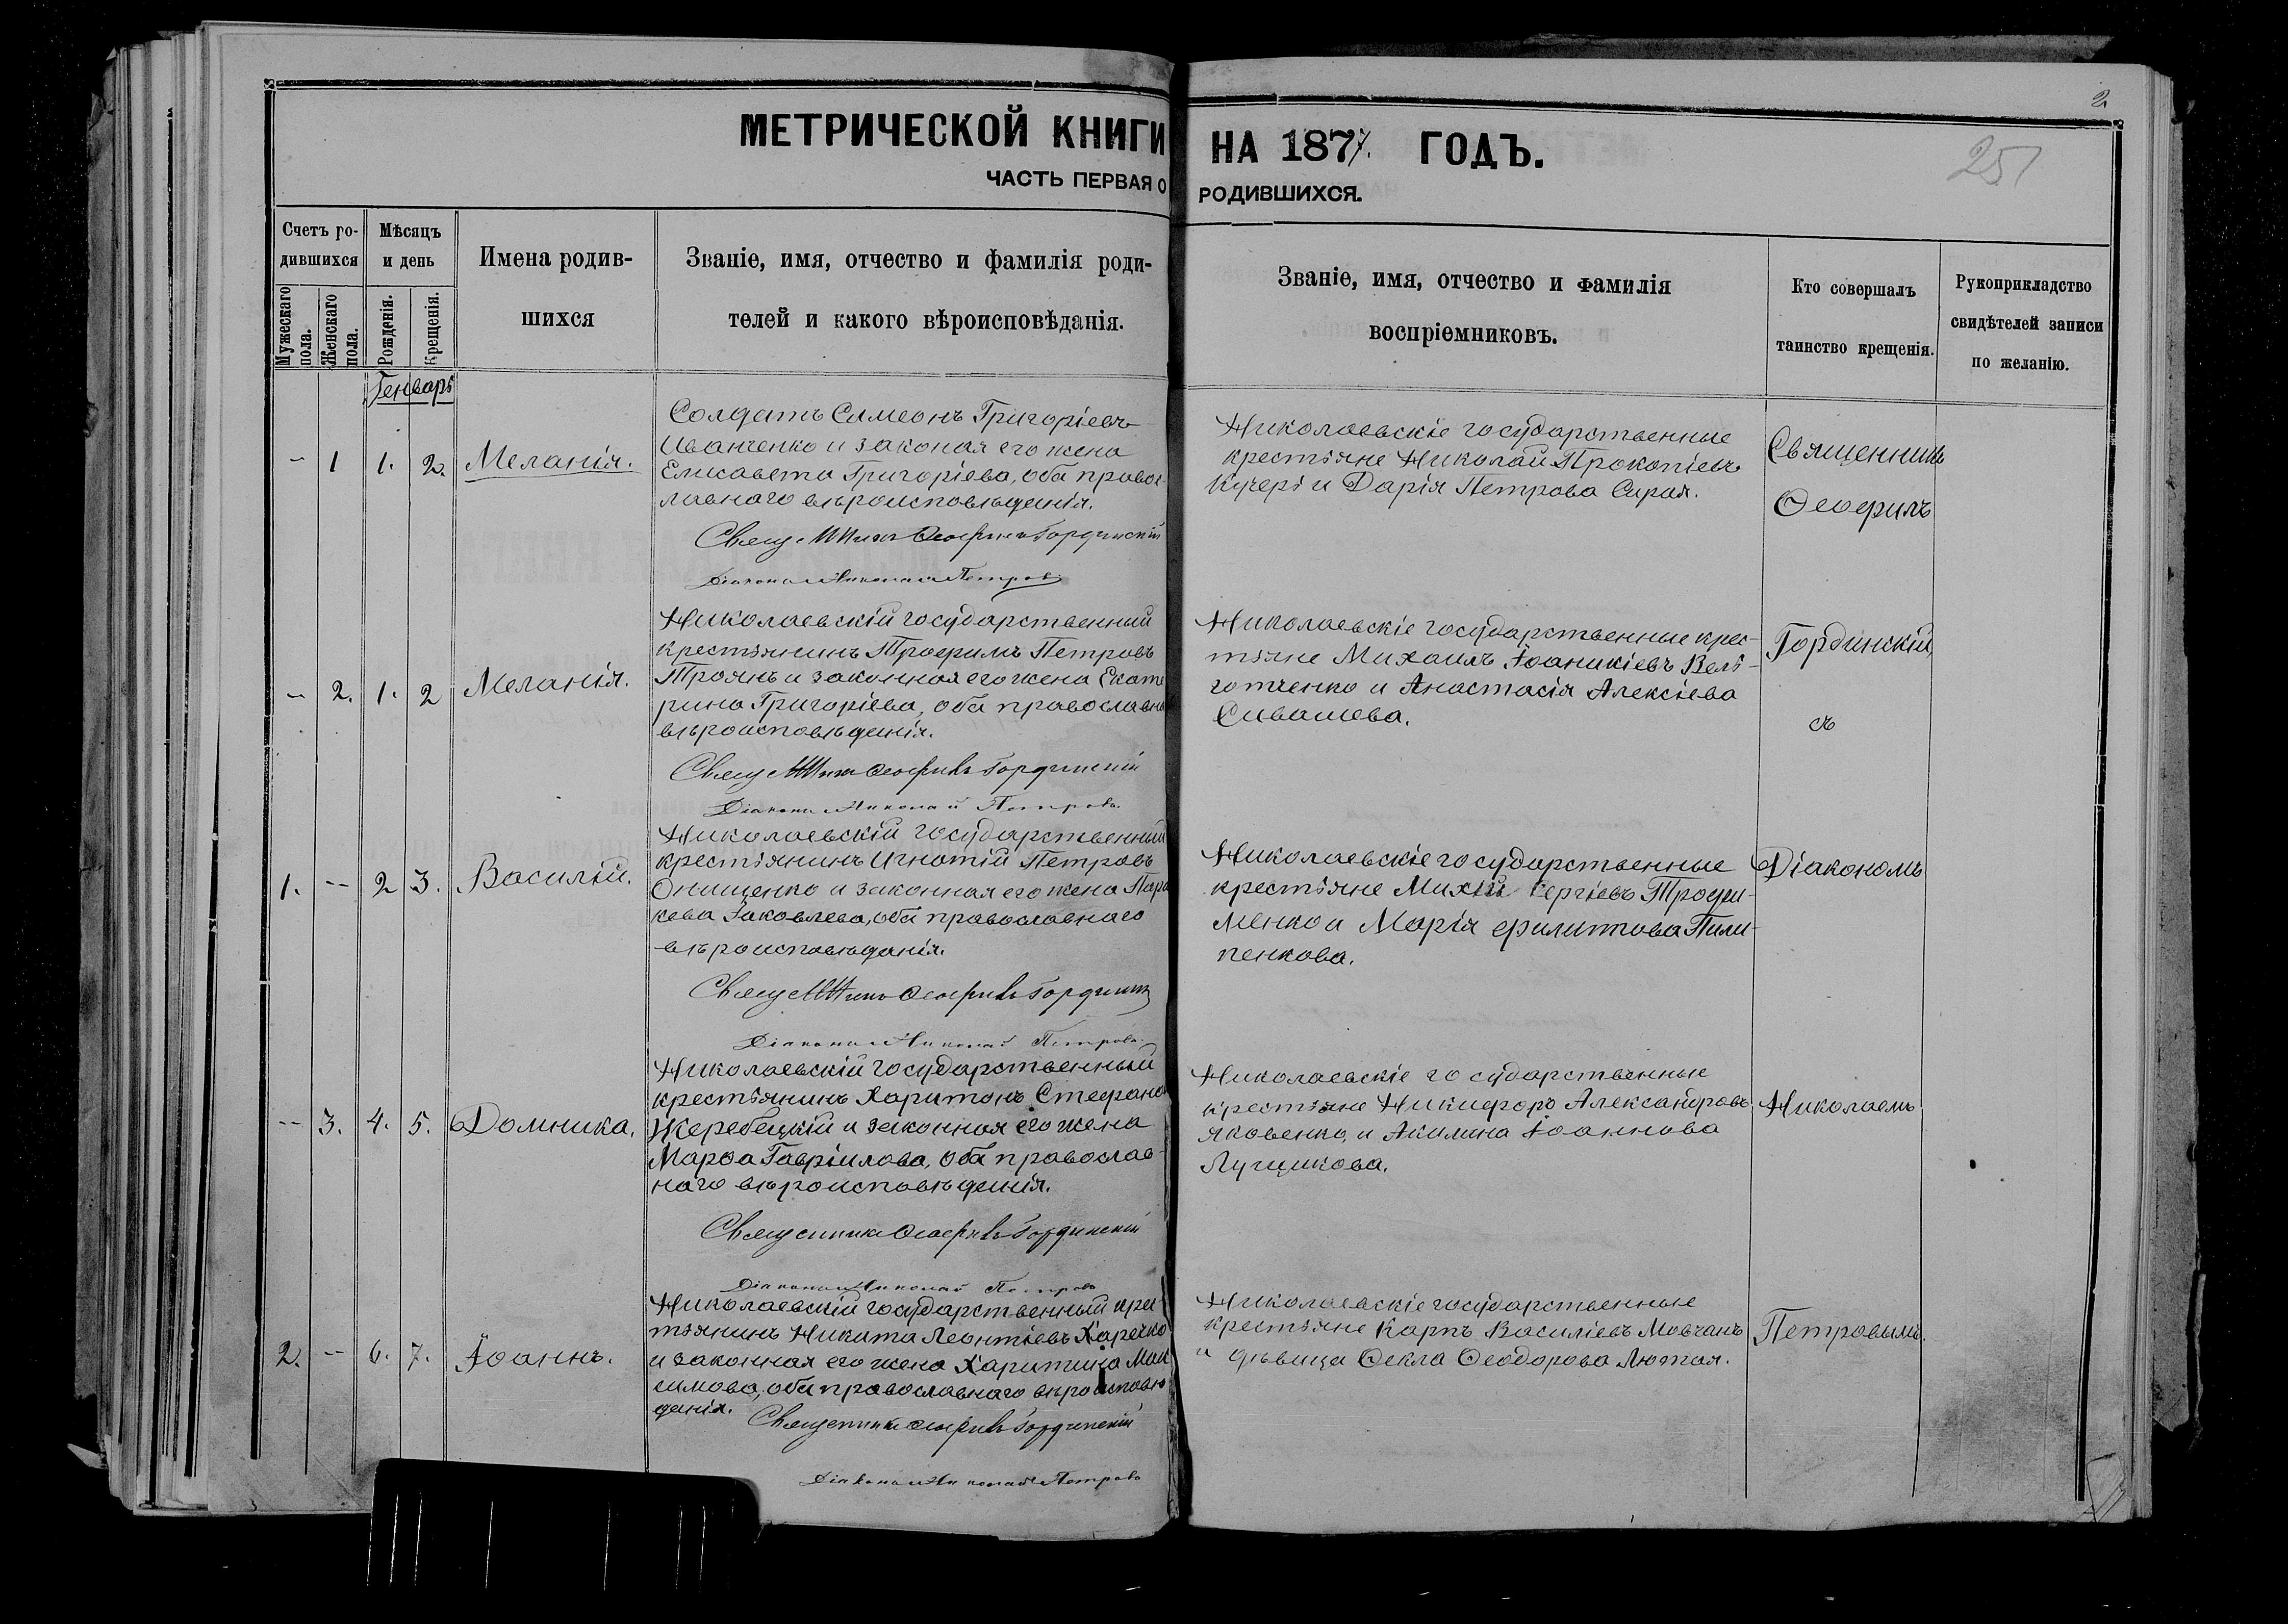 2
251
МЕТРИЧЕСКОЙ КНИГИ НА 1877. ГОДЪ.
ЧАСТЬ ПЕРВАЯ О РОДИВШИХСЯ.
Счетъ ро-
дившихся
Мужескаго
пола.
Женскаго
пола.
Мѣсяцъ
и день
Рожденія.
Крещенія.
Имена родив-
шихся
Званіе, имя, отчество и фамилія роди-
телей и какого вѣроисповѣданія.
Званіе, имя, отчество и фамилія
воспріемниковъ.
Кто совершалъ
таинство крещенія.
Рукоприкладство
свидѣтелей записи
по желанію.
Генварь
- 1 1. 2. Меланія.
Солдатъ Симеонъ Григоріевъ
Иванченко и законая его жена
Елисавета Григоріева, оба правос-
лавнаго вѣроисповѣданія.
Священникъ Ѳеофилъ Гординскій
Діаконъ Николай Петровъ
Николаевскіе государственные
крестьяне Николай Прокопіевъ
Кучеръ и Дарія Петрова Сирая.
Священникъ
Ѳеофилъ
- 2. 1. 2 Меланія.
Николаевскій государственный
крестьянинъ Трофимъ Петровъ
Троянъ и законная его жена Екате
рина Григоріева, оба православна
вѣроисповѣданія.
Священникъ Ѳеофилъ Гординскій
Діаконъ Николай Петровъ.
Николаевскіе государственные крес-
тьяне Михаилъ Іоаникіевъ Вель-
готченко и Анастасія Алексіева
Сивашева.
Гординскій,
съ
1. - 2 3. Василій.
Николаевскій государственный
крестьянинъ Игнатій Петровъ
Онищенко и законная его жена Пара
кева Іаковлева, оба православнаго
вѣроисповѣданія.
Священникъ Ѳеофилъ Гординскій
Діаконъ Николай Петровъ.
Николаевскіе государственные
крестьяне Михей Сергіевъ Трофи-
менко и Марія Филиппова Пили-
пенкова.
Діакономъ
- 3. 4. 5. Домника.
Николаевскій государственный
крестьянинъ Харитонъ Стефано
Жеребецкій и законная его жена
Марѳа Гавріилова, оба православ-
наго вѣроисповѣданія.
Священникъ Ѳеофилъ Гординскій
Діаконъ Николай Петровъ
Николаевскіе государственные
крестьяне Никифоръ Александровъ
Яковенко, и Акилина Іоаннова
Лучщикова.
Николаемъ
2. - 6. 7. Іоаннъ.
Николаевскій государственный крес
тьянинъ Никита Леонтіевъ Харечко
и законная его жена Харитина Мак
симова, оба православнаго вѣроисповѣ
данія.
Священникъ Ѳеофилъ Гординскій
Діаконъ Николай Петровъ
Николаевскіе государственные
крестьяне Карпъ Василіевъ Мовчанъ
и дѣвица Ѳекла Ѳеодорова Лютая.
Петровымъ.